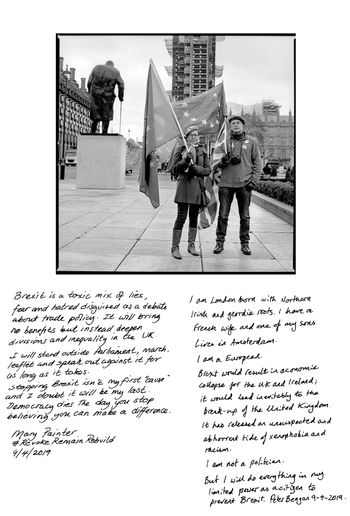 Brexit is a toxic mix of lies,
fear and hatred disguised as a debate
about trade policy. It will bring
no benefits but instead deepen
divisions and inequality in the UK
I will stand outside Parliament, march,
leaflet and speak out against it for
as long as it takes.
Stopping Brexit isn't my first "cause"
and I doubt it will be my last.
Democracy dies the day you stop
believing you can make a difference.
Mary Painter
#Revoke Remain Rebuild
9/4/2019
I am London born with Northern
Irish and geordie roots. I have a
French wife and one of my sons
lives in Amsterdam.
I am a European.
Brexit would result in economic
collapse for the UK and Ireland;
it would lead inevitably to the
break-up of the United Kingdom.
It has released an unexpected and
abhorrent tide of xenophobia and
racism.
I am not a politician.
But I will do everything in my
limited power as a citizen to
prevent Brexit. Peter 9-4-2019.